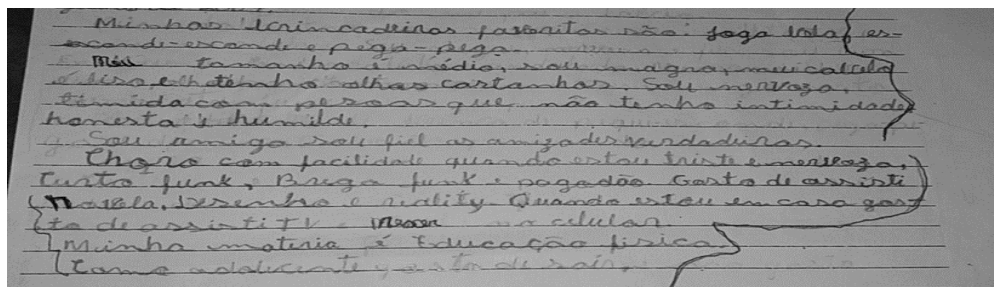 Minhas brincadeiras favoritas são: joga bola, es-
conde-esconde e pega-pega.
Meu tamanho é médio, sou magra, meu cabelo
é liso, e tenho olhos castanhos. Sou nervoza,
timida com pesoas que não tenho intimidade,
honesta e humilde.
Sou amiga sou fiel as amizades verdadeiras.
Choro com facilidade quando estou triste e nervoza,
Curto funk, Brega funk e pagodão. Gosto de assisti
Novela, desenho e reality. Quando estou em casa gos-
to de assisti TV e mexer no celular.
Minha materia é Educação fisica
Como adolecente gosto de sair.